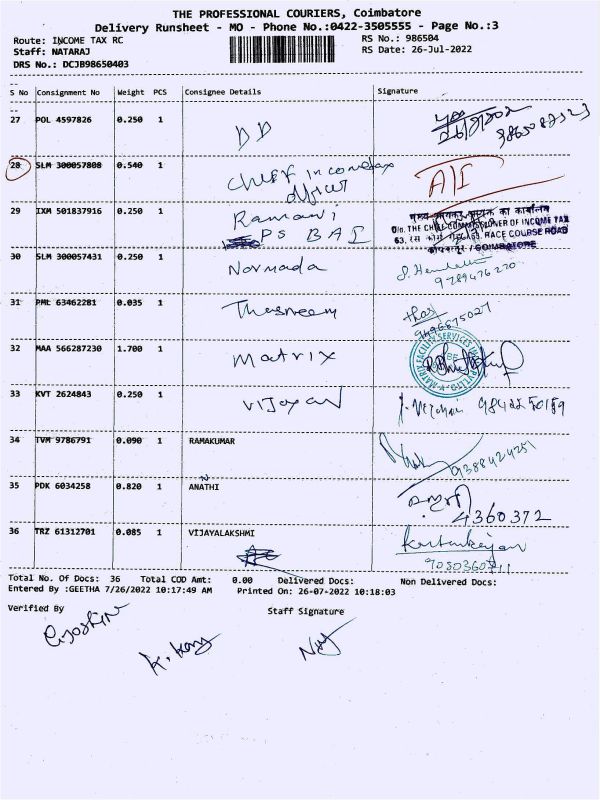 THE PROFESSIONAL COURIERS, Coimbatore
Delivery Runsheet - MO - Phone No.:0422-3505555 - Page No.:3
Route: INCOME TAX RC
RS No.: 986504
Staff: NATARAJ
RS Date: 26-Jul-2022
DRS No.: DCJB98650403
S No Consignment No Weight PCS Consignee Details Signature
27 POL 4597826 0.250 1 DD
28 SLM 300057808 0.540 1 Chief income tax officer A/I
29 IXM 501837916 0.250 1 Ramani PS BAI
मुख्य आयकर आयुक्त का कार्यालय
O/o. THE CHIEF COMMISSIONER OF INCOME TAX
63, RACE COURSE ROAD
कोयम्बटूर / COIMBATORE
30 SLM 300057431 0.250 1 Normada 9789476270
31 PML 63462281 0.035 1 Thasneem
32 MAA 566287230 1.700 1 Matrix
MATRIX FACILITY SERVICES
33 KVT 2624843 0.250 1 Vijayan
34 TVM 9786791 0.090 1 RAMAKUMAR 9388424251
35 PDK 6034258 0.820 1 ANATHI 4360372
36 TRZ 61312701 0.085 1 VIJAYALAKSHMI
Total No. Of Docs: 36 Total COD Amt: 0.00 Delivered Docs: Non Delivered Docs:
Entered By :GEETHA 7/26/2022 10:17:49 AM Printed On: 26-07-2022 10:18:03
Verified By Staff Signature